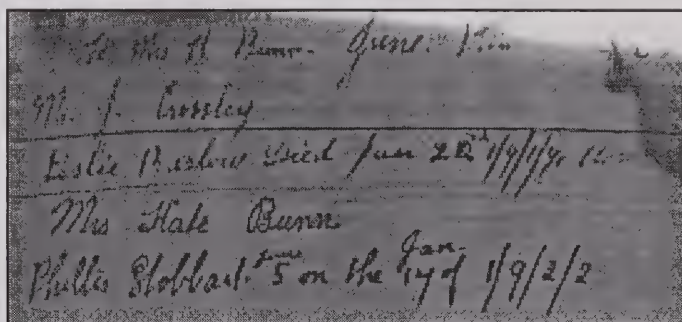 Mrs H Bunn. June
M. J. Crossley
Leslie Barlow Died Jan 1/9/1/9.
Mrs Kate Bunn
Phillis Stobbart. 5 on the Jan. 14 of 1/9/2/2